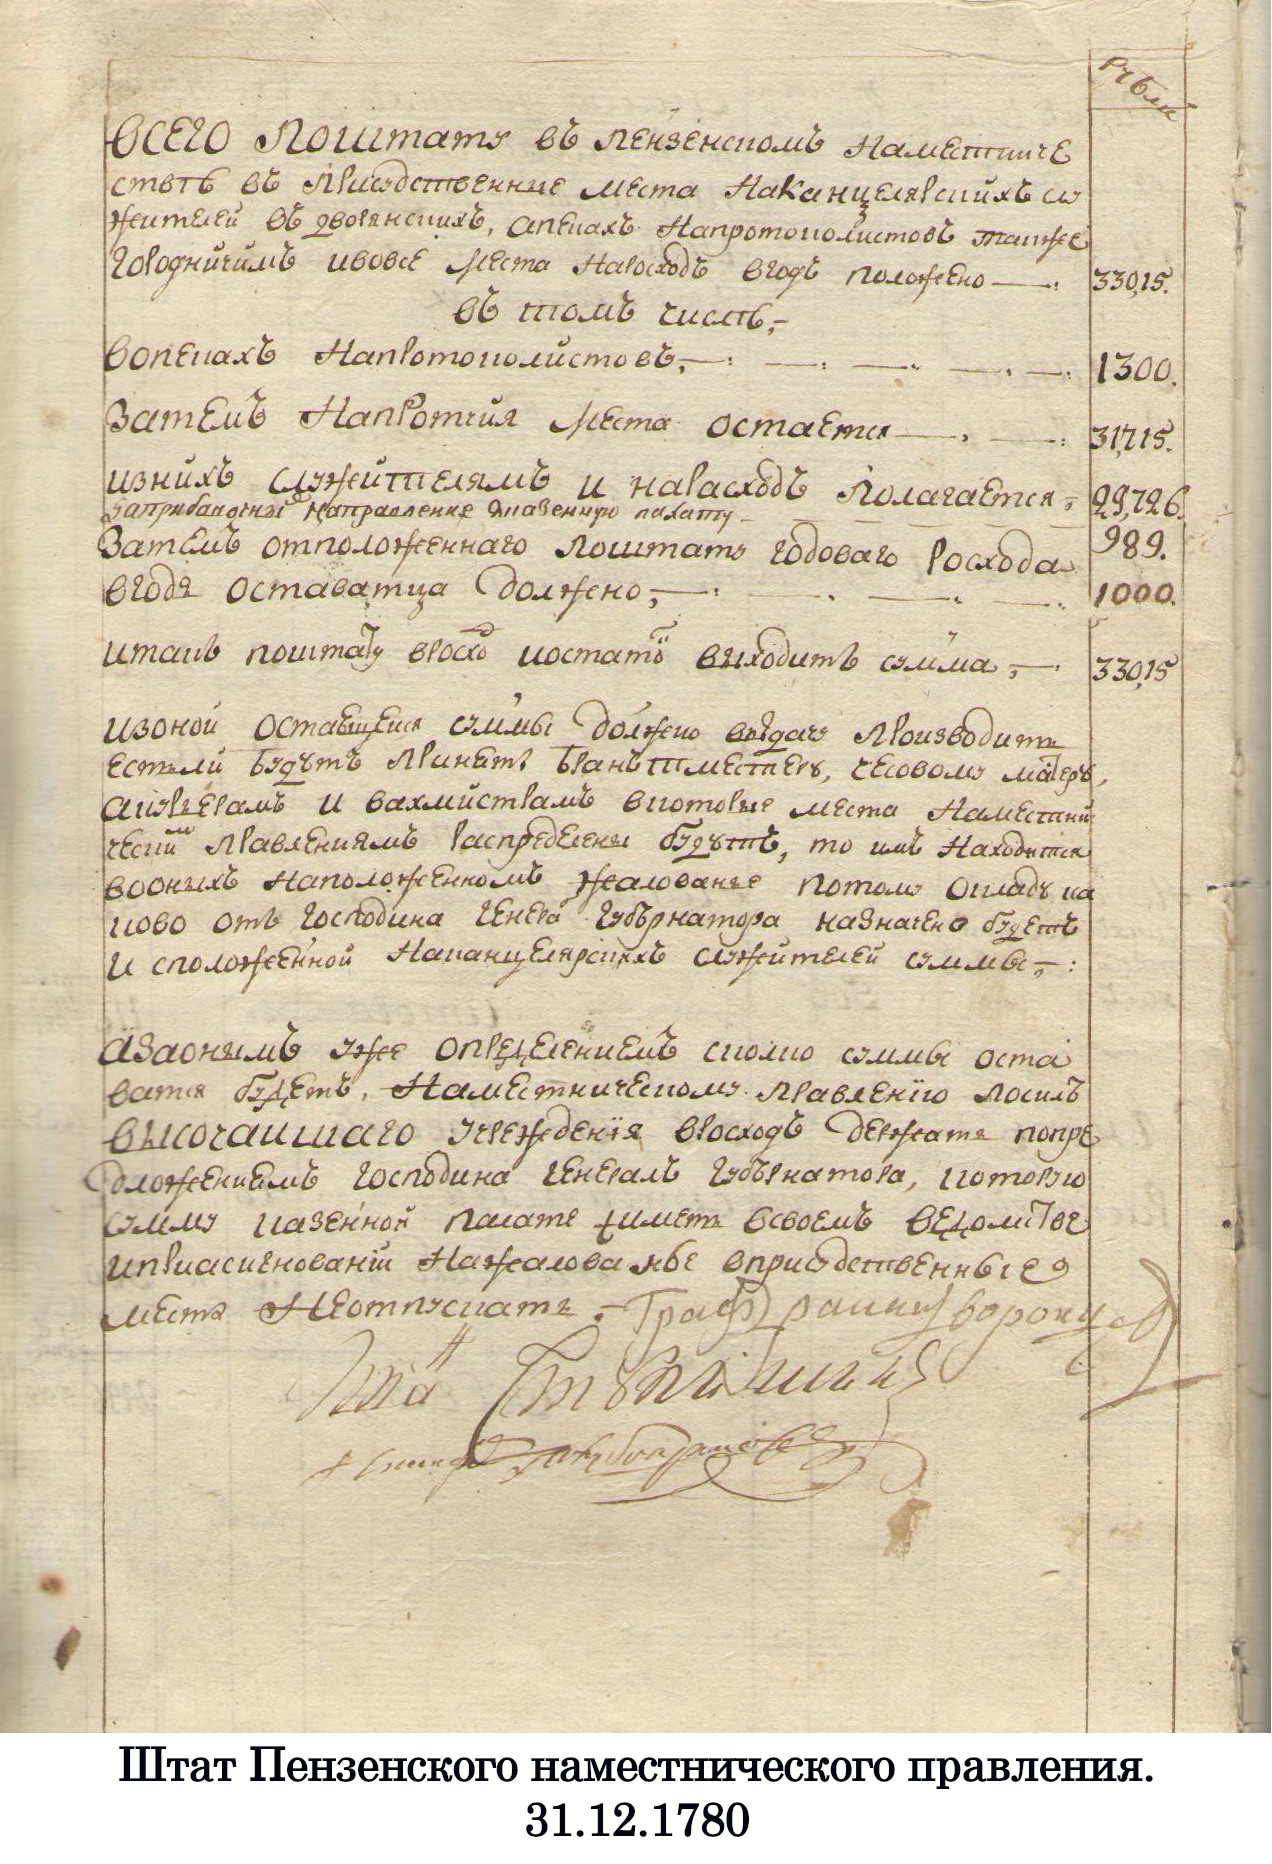 Рубли
всего поштату въ пензенскомъ наместниче
стве въ присудственные места наканцелярскихъ слу
жителей въ дворянскихъ, апекахъ напротоколистовъ также
городничимъ ивовсе места наросходъ вгодъ положено 330,15.
въ томъ числе,
вопекахъ напротоколистовъ, 1300.
затемъ напротчия места остается 317,15.
изнихъ служителямъ и нарасходъ полагается, 29,726.
заприбавочныя направление казенную палату 989.
затемъ отположеннаго поштату годоваго росхода
вгодя оставатца должено, 1000.
итакъ поштату вросхо иостато выходитъ сумма, 330,15
изоной оставшеися суммы должено выдачу производить
естьли будутъ приняты брантмеистеру, часовому мастеру,
акушерамъ и вахмистрамъ вкоторые места наместни
чески правлениямъ распределены будутъ, то имъ находится
воныхъ наположенномъ жалованье потому окладу ка
ково отъ господина генера губернатора назначено будетъ
и сположенной наканцелярскихъ служителей суммы,
азаонымъ уже определениемъ сколко суммы оста
ватся будетъ, наместническому правлению посилъ
высочаишаго учреждения вросходъ держать попре
дложениемъ господина генералъ губернатора, которую
сумму казенной палате иметь всвоемъ ведомстве
иприасигновании нажалованье вприсудственные
места неотпускать,
Графъ романъ воронцовъ
Штат Пензенского наместнического правления.
31.12.1780